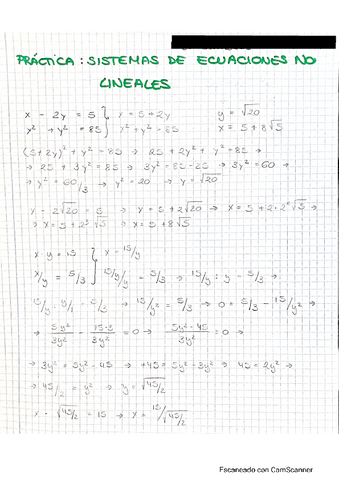 PRÁCTICA: SISTEMAS DE ECUACIONES NO
LINEALES
x - 2y = 5 } x = 5 + 2y    y = √20
y² + y² = 85 } x² + y² = 85    x = 5 + 8√5
(5+2y)² + y² = 85 → 25 + 2y² + y² = 85 →
→ 25 + 3y² = 85 → 3y² = 85 - 25 → 3y² = 60 →
→ y² = 60/3 → y² = 20 → y = √20
x - 2√20 = 5 → x = 5 + 2√20 → x = 5 + 2·2²√5 →
→ x = 5 + 2³√5 → x = 5 + 8√5
x y = 15 } x = 15/y
x/y = 5/3 } 15/y/y = 5/3 → 15/y : y = 5/3 →
15/y · y/1 = 5/3 → 15/y² = 5/3 → 0 = 5/3 - 15/y² →
→ 5y²/3y² - 15·3/3y² = 0 → 5y² - 45/3y² = 0 →
→ 3y² = 5y² - 45 → +45 = 5y² - 3y² → 45 = 2y² →
→ 45/2 = y² → y = √45/2
x · √45/2 = 15 → x = 15/√45/2
Escaneado con CamScanner